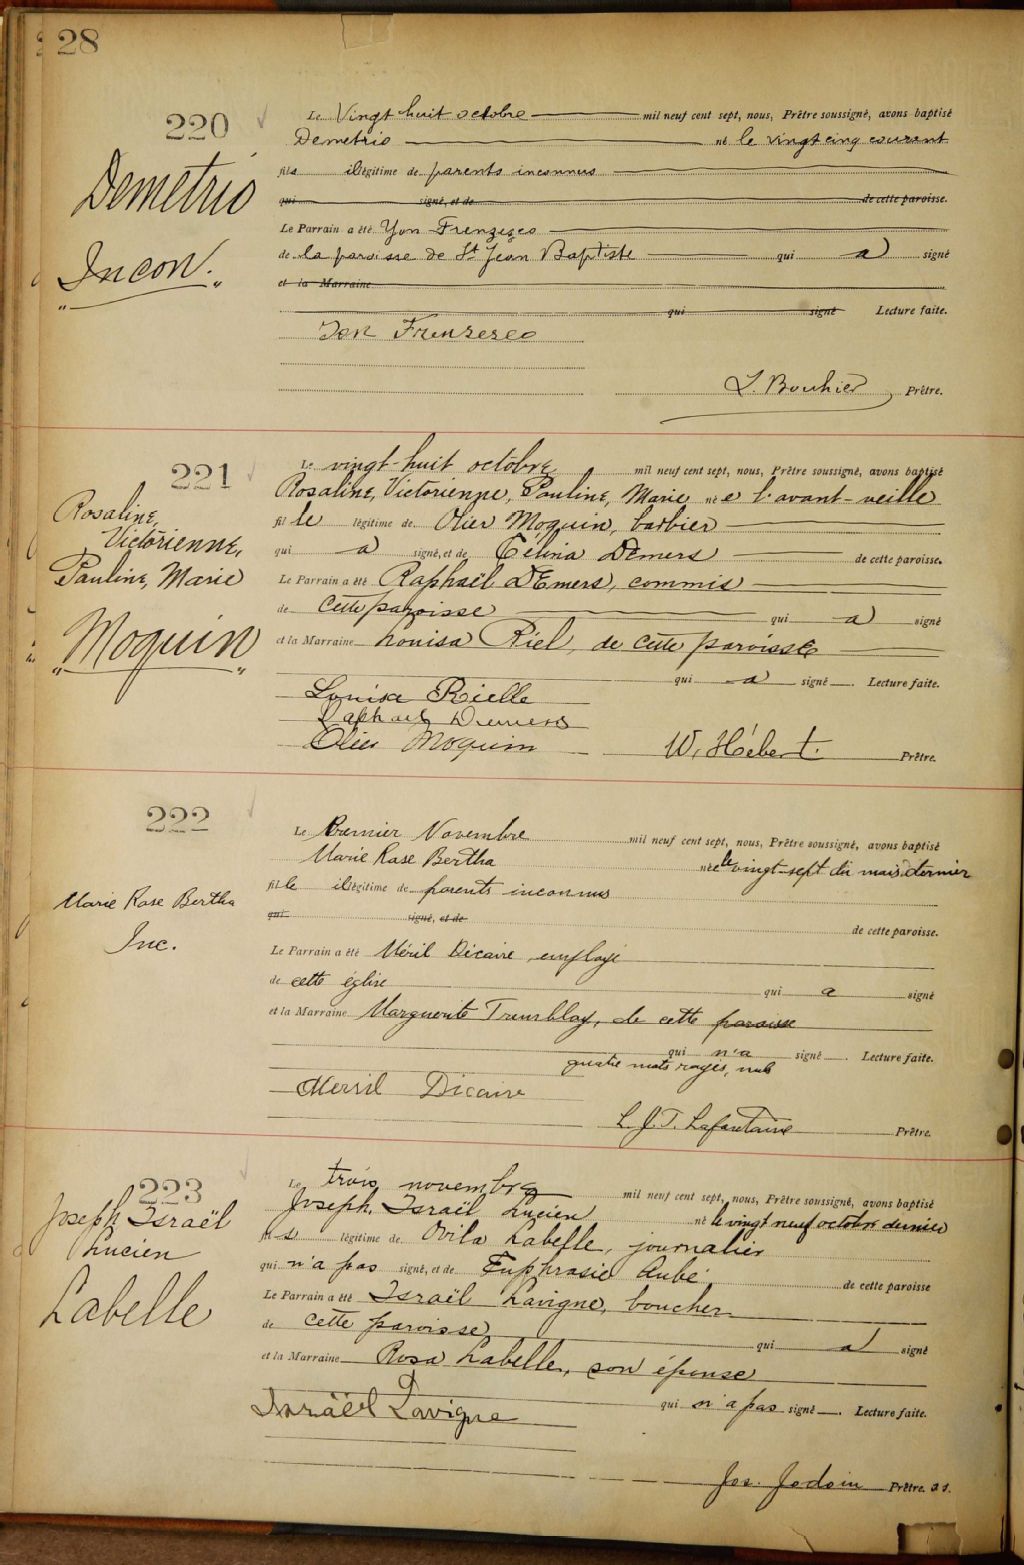 28
220
Demetrio
Incon.
Le Vingt huit octobre mil neuf cent sept, nous, Prêtre soussigné, avons baptisé
Demetrio né le vingt cinq courant
fils illégitime de parents inconnus
qui signé, et de de cette paroisse.
Le Parrain a été Yon Frenzezeo
de la paroisse de St Jean Baptiste qui a signé
et la Marraine
qui signé Lecture faite.
Frenzezeo
L. Bouhier Prêtre.
221
Rosaline,
Victorienne,
Pauline, Marie
Moquin
Le vingt-huit octobre mil neuf cent sept, nous, Prêtre soussigné, avons baptisé
Rosaline, Victorienne, Pauline, Marie née l'avant-veille
fille légitime de Olier Moquin, barbier
qui a signé, et de Célina Demers de cette paroisse.
Le Parrain a été Raphaël Demers, commis
de cette paroisse qui a signé
et la Marraine Louisa Riel, de cette paroisse
qui a signé Lecture faite.
Louisa Rielle
Raphael Demers
Olier Moquin W. Hébert. Prêtre.
222
Marie Rose Bertha
Inc.
Le Premier Novembre mil neuf cent sept, nous, Prêtre soussigné, avons baptisé
Marie Rose Bertha née le vingt-sept du mois dernier
fille illégitime de parents inconnus
qui signé, et de de cette paroisse.
Le Parrain a été Méril Dicaire, employé
de cette église qui a signé
et la Marraine Marguerite Tremblay, de cette paroisse
qui n'a signé Lecture faite.
quatre mots rayés, nuls
Merril Dicaire
L. J. T. Lafontaine Prêtre.
223
Joseph Israël
Lucien
Labelle
Le trois novembre mil neuf cent sept, nous, Prêtre soussigné, avons baptisé
Joseph Israël Lucien né le vingt neuf octobre dernier
fils légitime de Ovila Labelle, journalier
qui n'a pas signé, et de Euphrasie Aubé de cette paroisse
Le Parrain a été Israël Lavigne, boucher
de cette paroisse qui a signé
et la Marraine Rosa Labelle, son épouse
qui n'a pas signé Lecture faite.
Israël Lavigne
Jos. Jodoin Prêtre. s s.